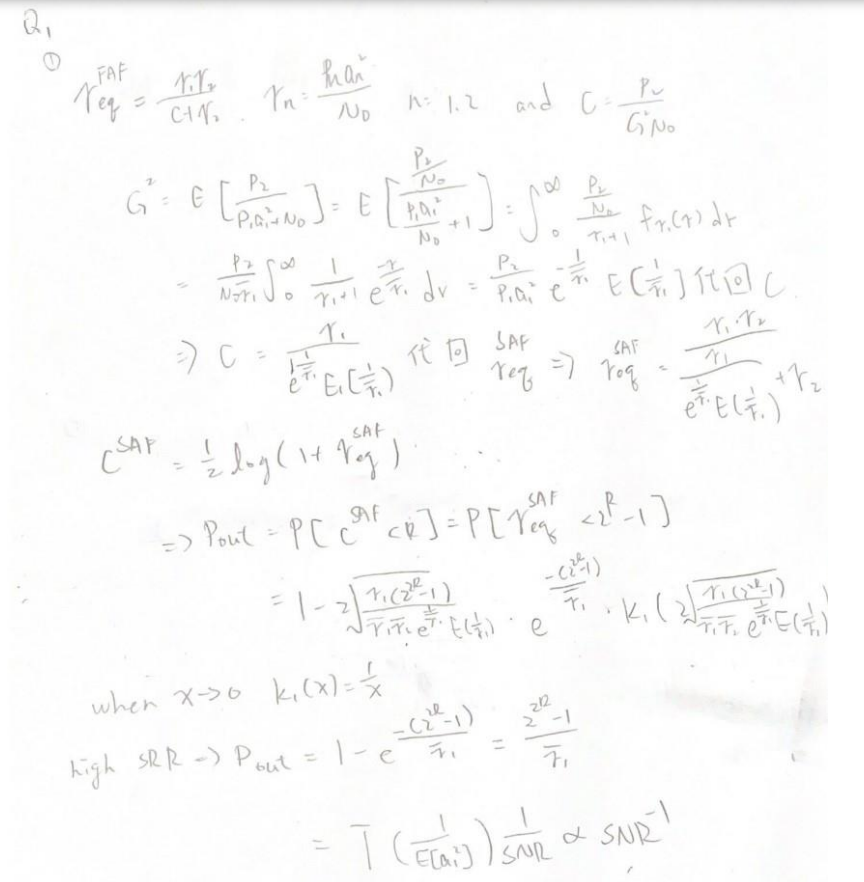 Q1
①
γ_eq^{FAF} = γ1γ2 / (C+γ2). γn = Pn an² / N0   n= 1.2 and C = P2 / (G²N0)
G² = E[P2 / (P1a1²+N0)] = E[(P2/N0) / (P1a1²/N0 + 1)] = ∫_0^∞ (P2/N0) / (γ1+1) f_γ1(γ) dγ
= P2 / (N0γ̄1) ∫_0^∞ 1/(γ1+1) e^{-γ/γ̄1} dγ = P2 / (P1a1²) e^{-1/γ̄1} E[1/γ̄1] 代回 C
=> C = γ1 / (e^{1/γ̄1} E1(1/γ̄1)) 代回 γ_eq^{SAF} => γ_eq^{SAF} = γ1·γ2 / (γ1 / (e^{1/γ̄1} E(1/γ̄1)) + γ2)
C^{SAF} = 1/2 log(1+ γ_eq^{SAF})
=> Pout = P[C^{SAF} <R] = P[γ_eq^{SAF} <2^R -1]
= 1 - 2√(γ1(2^{2R}-1) / (γ̄1γ̄2 e^{1/γ̄1} E(1/γ̄1))) · e^{-(2^{2R}-1)/γ̄1} · K1(2√(γ1(2^{2R}-1) / (γ̄1γ̄2 e^{1/γ̄1} E(1/γ̄1)))
when x->0 K1(x) = 1/x
high SRR -> Pout = 1 - e^{-(2^{2R}-1)/γ̄1} = (2^{2R}-1) / γ̄1
= T̄ (1/E[a1²]) 1/SNR ∝ SNR^{-1}